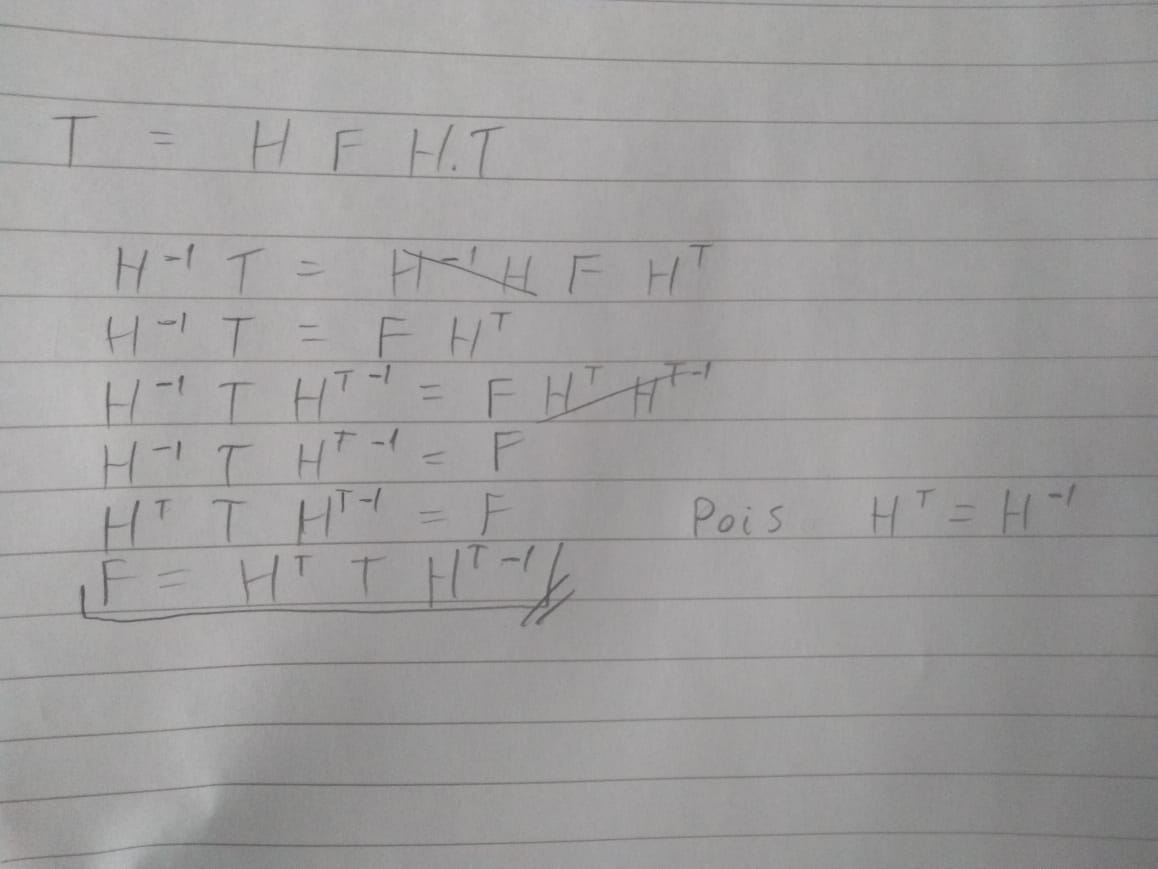 T = H F H.T
H⁻¹ T = H⁻¹ H F Hᵀ
H⁻¹ T = F Hᵀ
H⁻¹ T Hᵀ⁻¹ = F Hᵀ Hᵀ⁻¹
H⁻¹ T Hᵀ⁻¹ = F
Hᵀ T Hᵀ⁻¹ = F Pois Hᵀ = H⁻¹
F = Hᵀ T Hᵀ⁻¹